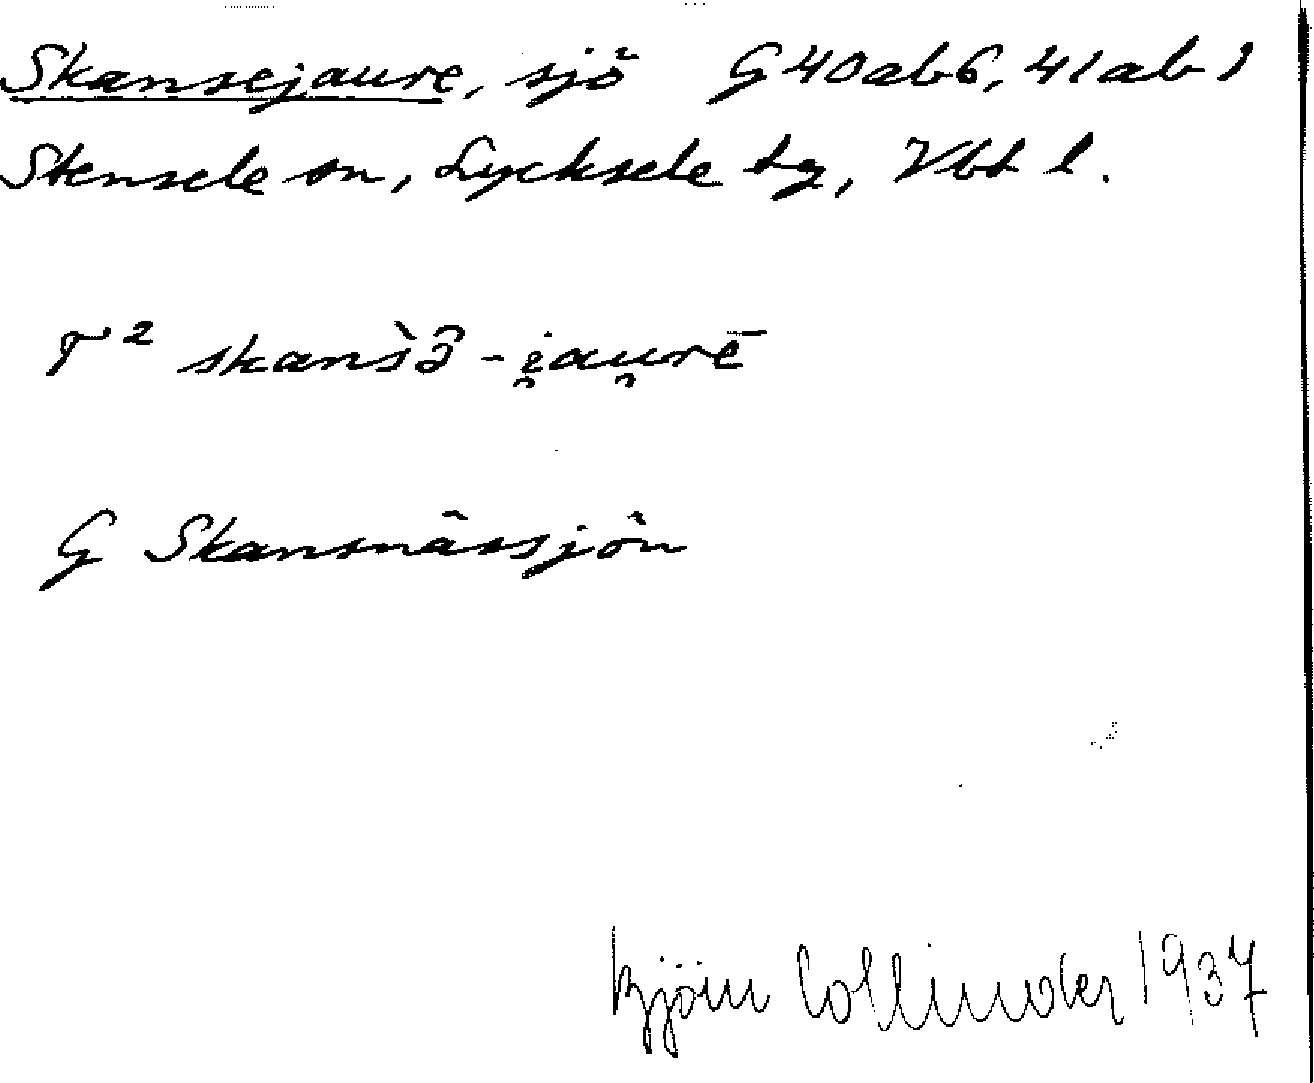 Skansejaure, sjö G 40ab6, 41ab1
Stensele sn, Lycksele tg, Vbt l.
T² skans̀ə̑ -i̯au̯rē
G Skansnässjön
Björn Collinder 1937